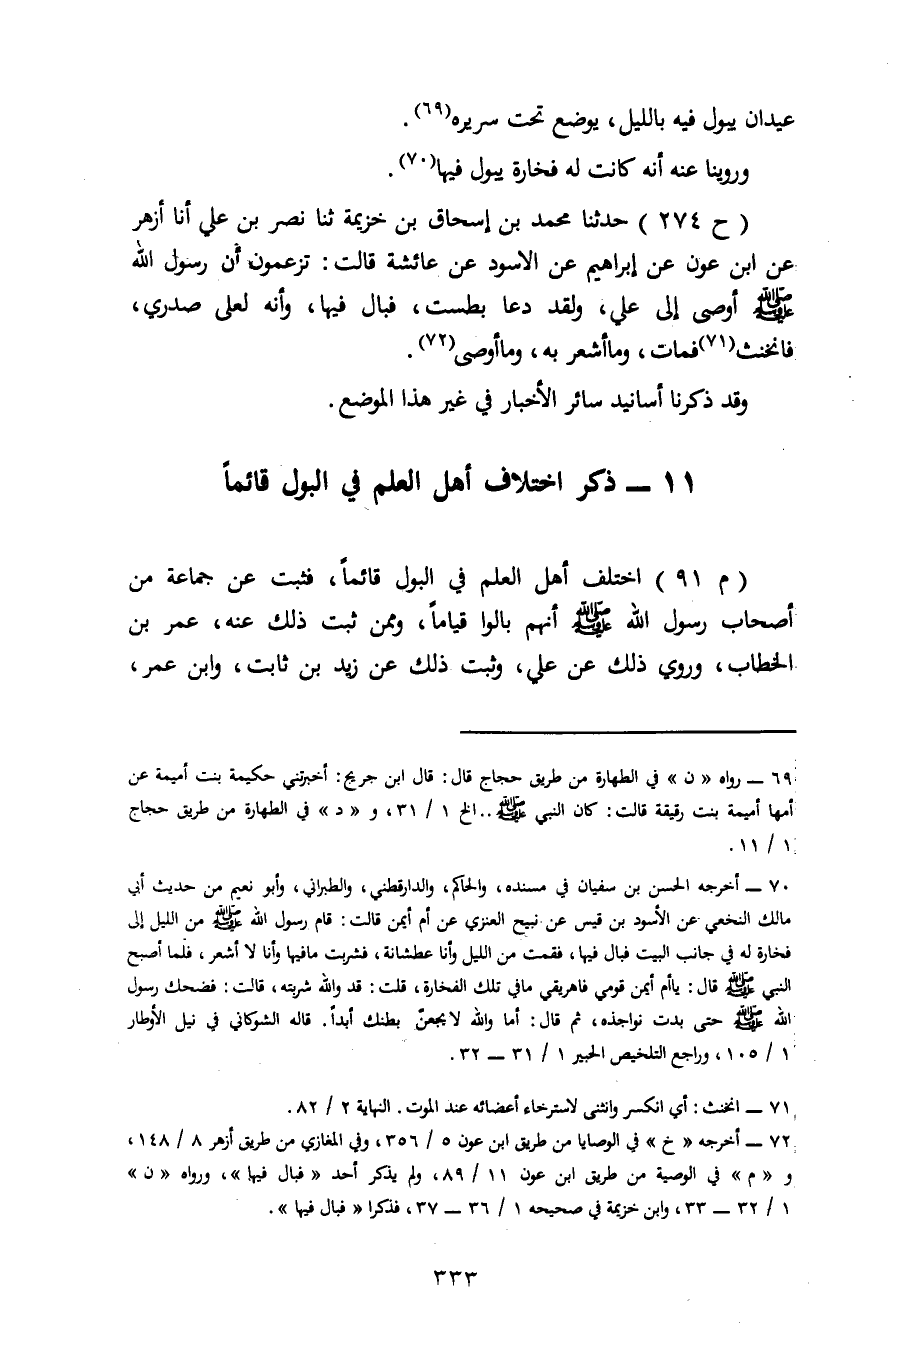 عيدان يبول فيه بالليل، يوضع تحت سريره(٦٩).
وروينا عنه أنه كانت له فخارة يبول فيها(٧٠).
( ح ٢٧٤ ) حدثنا محمد بن إسحاق بن خزيمة ثنا نصر بن علي أنا أزهر
عن ابن عون عن إبراهيم عن الاسود عن عائشة قالت: تزعمون أن رسول الله
ﷺ أوصى إلى علي، ولقد دعا بطست، فبال فيها، وأنه لعلى صدري،
فانخنث(٧١)فمات، وماأشعر به، وماأوصى(٧٢).
وقد ذكرنا أسانيد سائر الأخبار في غير هذا الموضع.
١١ ــ ذكر اختلاف أهل العلم في البول قائماً
( م ٩١ ) اختلف أهل العلم في البول قائماً، فثبت عن جماعة من
أصحاب رسول الله ﷺ أنهم بالوا قياماً، وممن ثبت ذلك عنه، عمر بن
الخطاب، وروي ذلك عن علي، وثبت ذلك عن زيد بن ثابت، وابن عمر،
٦٩ ــ رواه « ن » في الطهارة من طريق حجاج قال: قال ابن جريج: أخبرتني حكيمة بنت أميمة عن
أمها أميمة بنت رقيقة قالت: كان النبي ﷺ..الخ ١ / ٣١، و « د » في الطهارة من طريق حجاج
١ / ١١.
٧٠ ــ أخرجه الحسن بن سفيان في مسنده، والحاكم، والدارقطني، والطبراني، وأبو نعيم من حديث أبي
مالك النخعي عن الأسود بن قيس عن نبيح العنزي عن أم أيمن قالت: قام رسول الله ﷺ من الليل إلى
فخارة له في جانب البيت فبال فيها، فقمت من الليل وأنا عطشانة، فشربت مافيها وأنا لا أشعر، فلما أصبح
النبي ﷺ قال: ياأم أيمن قومي فاهريقي مافي تلك الفخارة، قلت: قد والله شربته، قالت: فضحك رسول
الله ﷺ حتى بدت نواجذه، ثم قال: أما والله لايجعنّ بطنك أبداً. قاله الشوكاني في نيل الأوطار
١ / ١٠٥، وراجع التلخيص الحبير ١ / ٣١ ــ ٣٢.
٧١ ــ انخنث: أي انكسر وانثنى لاسترخاء أعضائه عند الموت. النهاية ٢ / ٨٢.
٧٢ ــ أخرجه « خ » في الوصايا من طريق ابن عون ٥ / ٣٥٦، وفي المغازي من طريق أزهر ٨ / ١٤٨،
و « م » في الوصية من طريق ابن عون ١١ / ٨٩، ولم يذكر أحد « فبال فيها »، ورواه « ن »
١ / ٣٢ ــ ٣٣، وابن خزيمة في صحيحه ١ / ٣٦ ــ ٣٧، فذكرا « فبال فيها ».
٣٣٣